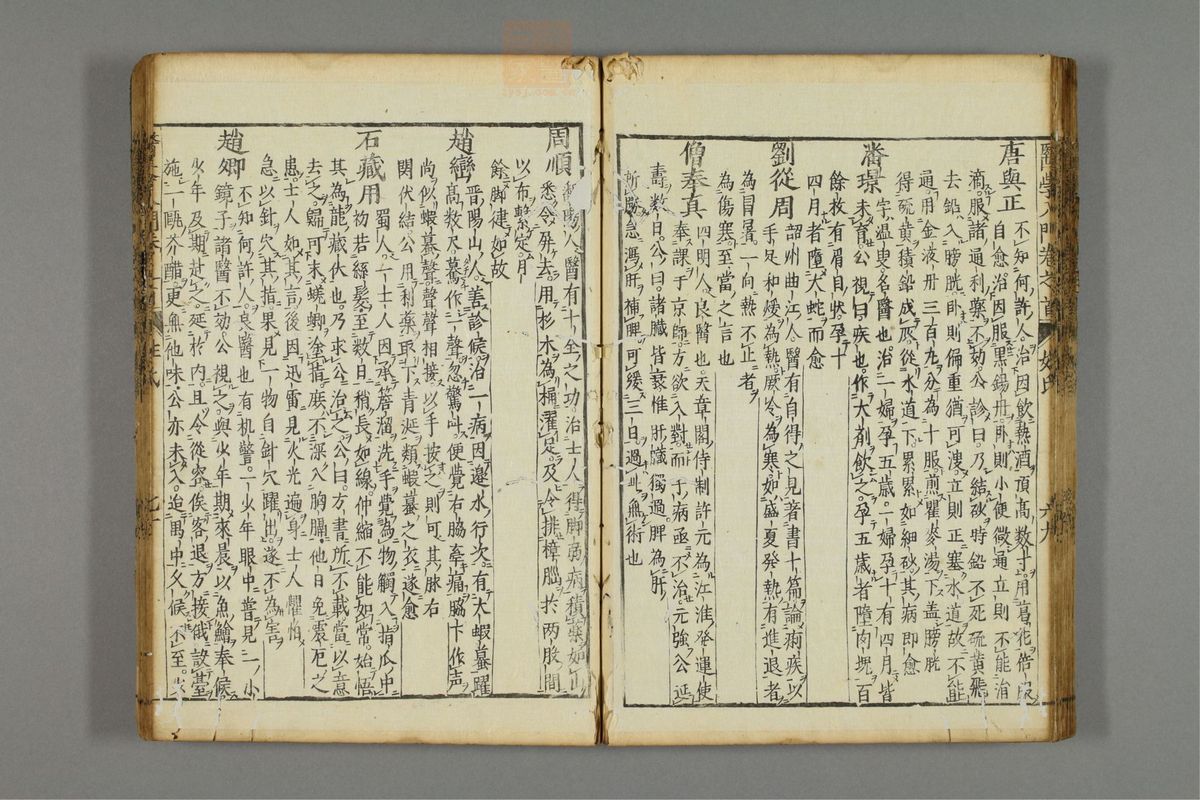 醫學入門卷之首 姓氏 六九
唐與正 不知何許人治因飲熱酒頂高数寸用葛花倍服
自愈治因服黒錫丹卧則小便微通立則不能治
滴服諸通利藥不効公診曰乃結砂時鉛不死硫黄飛
去鉛入膀胱卧則偏重猶可溲立則正塞水道故不能
通用金液丹三百九分為十服煎瞿麥湯下盖膀胱
得硫黄積鉛成灰從水道下累累如細砂其病即愈
潘璟 字温叟名醫也治一婦孕五歳一婦孕十有四月皆
未育公視曰疾也作大剤飲之孕五歳者墮肉塊百
餘枚有眉目状孕十
四月者墮大蛇而愈
劉從周 韶州曲江人醫有自得之見著書十篇論痢疾以
手足和煖為熱厥冷為寒如盛夏發熱有進退者
為冒暑一向熱不正者
為傷寒至當之言也
僧奉真 四明人良醫也天章閣侍制許元為江淮發運使
奏課于京師方欲入對而子病亟不治元強公延
壽数日公曰諸臓皆衰惟肝臓獨過脾為肝
所勝急瀉肝補脾可緩三日過此無術也
周順 鄱陽人醫有十全之功治士人得脚弱病積藥如山
悉令屏去用杉木為桶濯足及令排樟腦於两股間
以布繋定月
餘脚建如故
趙巒 晋陽山人善診候治一病因邊水行次有大蝦蟇躍
高数尺驀作一聲忽驚叫便覺右脇牽痛脇下作声
尚似蝦蟇聲聲相接以手按之則可其脉右
関伏結公用利藥取下青涎類蝦蟇之衣遂愈
石藏用 蜀人一士人因承簷溜洗手覺為物觸入指爪中
初若絲髪至数日稍長如線仲縮不能如常始悟
其為龍藏伏也乃求公治之公曰方書所不載當以意
去之歸可末蜣蜋塗指庶不深入胸膈他日免震厄之
患士人如其言後因迅雷見火光遍身士人懼怕
急以針穴其指果見一物自針穴躍出遂不為害
趙卿 不知何許人良醫也有机警一少年眼中嘗見一小
鏡子諸醫不効公視之與少年期來晨以魚鱠奉候
少年及期赴之延於内且令從容俟客退方接俄設臺
施一甌芥醋更無他味公亦未入迨禺中久候不至少